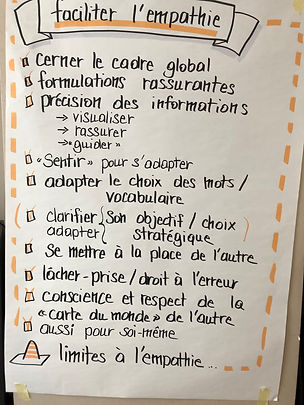 faciliter l'empathie
cerner le cadre global
formulations rassurantes
précision des informations
→ visualiser
→ rassurer
→ « guider »
« Sentir » pour s'adapter
adapter le choix des mots /
vocabulaire
( clarifier { Son objectif / choix )
adapter { stratégique
Se mettre à la place de l'autre
lâcher-prise / droit à l'erreur
conscience et respect de la
« carte du monde » de l'autre
aussi pour soi-même
limites à l'empathie...